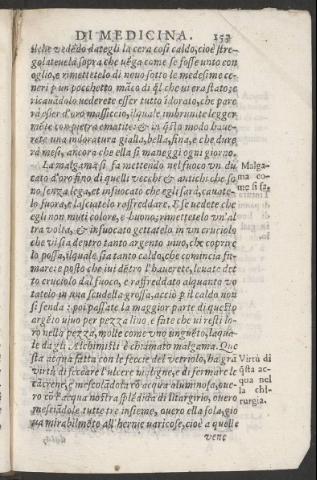 DI MEDICINA. 153
ilche vedēdo dategli la cera così caldo, cioè stre-
golatevela sopra che vēga come se fosse unto con
oglio, e rimettetelo di nuovo sotto le medesime ce-
neri p un pochetto, māco di ql che vi era stato; e
ricavādolo vederete esser tutto ĩdorato, che pare
rà esser d'oro massiccio, ilquale imbrunite legger
mēte con pietra ematite: & in q̄sto modo have-
rete una indoratura gialla, bella, fina, e che dure
rà mesi, ancora che ella si maneggi ogni giorno.
La malgama si fa mettendo nel fuoco vn du
cato d'oro fino di quelli vecchi & antichi che so
no senza lega, et infuocato che egli sarà, cavate-
lo fuora, e lasciatelo raffreddare. E se vedete che
egli non muti colore, è buono; rimettetelo vn'al
tra volta, & infuocato gettatelo in vn cruciolo
che vi sia dentro tanto argento vivo, che coprir e
lo possa, ilquale sia tanto caldo, che comincia fu-
mare: e posto che ivi dētro l'haverete, levate det
to cruciolo dal fuoco, e raffreddato alquanto vo
tatelo in una scudella grossa, acciò p il caldo non
si fenda: poi passate la maggior parte di questo
argēto vivo per pezza lino, e fate che vi resti l'o-
ro nella pezza, molle come uno unguēto, laqua-
le dagli Alchimisti è chiamato malgama. Que
sta acqua fatta con le feccie del vetriolo, ha grā
virtù di seccare l'ulcere maligne, e di fermare le
cācrene, e mescolādola cō acqua aluminosa, ove-
ro cō l'acqua nostra splēdida di litargirio, overo
mescādole tutte tre insieme, overo ella sola, gio
va mirabilmēte all'hernie varicose, cioè a quelle
vene
Malga-
ma co-
me si fa.
Virtù di
q̄sta ac-
qua nel
la chi-
rurgia.